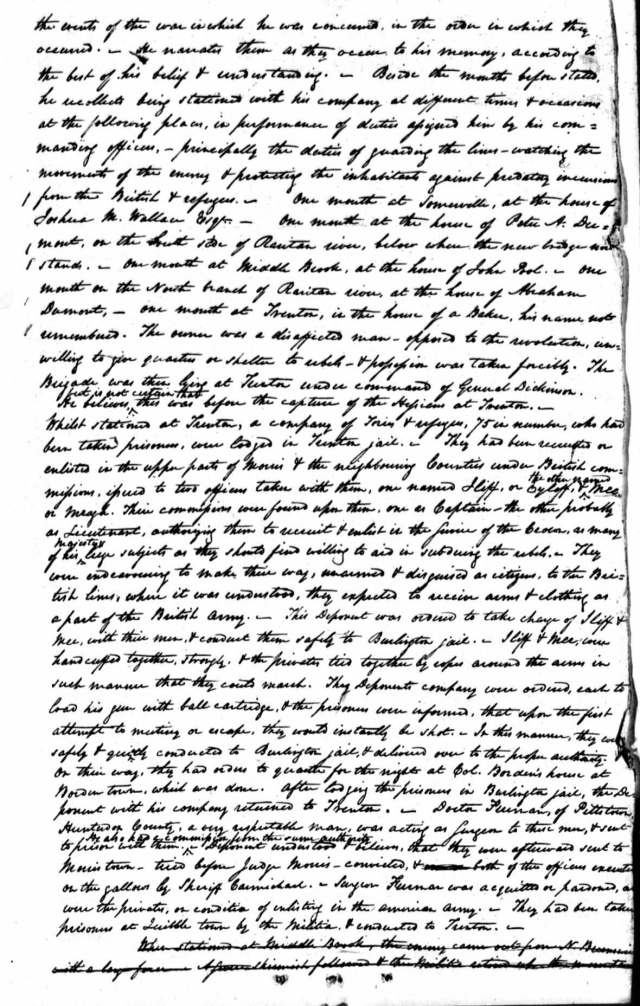 the events of the war in which he was concerned, in the order in which they
occured. – He narrates them as they occur to his memory, according to
the best of his belief & understanding. – Beside the months before stated,
he recollects being stationed with his company at different times & occasions
at the following places, in performance of duties assigned him by his com=
manding officers, – principally the duties of guarding the lines – watching the
movements of the enemy & protecting the inhabitants against predatory incursions
from the British & refugees. – One month at Somerville, at the house of
Joshua M. Wallace Esqr. – One month at the house of Peter A. Du=
mont, on the South side of Raritan river, below where the new bridge now
stands. – One month at Middle Brook, at the house of John Pool. – One
month on the North branch of Raritan river, at the house of Abraham
Dumont, – one month at Trenton, in the house of a Baker, his name not
remembered. The owner was a disaffected man – opposed to the revolution, un=
willing to give quarters or shelter to rebels – & possession was taken forcibly. The
Brigade was then lying at Trenton under command of General Dickinson.
but is not certain that
He believes this was before the capture of the Hessians at Trenton. –
Whilst stationed at Trenton, a company of Tories & refugees, 75 in number, who had
been taken prisoners, were lodged in Trenton jail. – They had been recruited or
enlisted in the upper parts of Morris & the neighbouring Counties under British com=
the other named
missions, issued to two officers taken with them, one named Iliff, or Eyloff, Mee
or Megh. Their commissions were found upon them, one as Captain – the other probably
as Lieutenant, authorizing them to recruit & enlist in the service of the Crown, as many
majestys
of his liege subjects as they should find willing to aid in subduing the rebels. – They
were endeavouring to make their way, unarmed & disguised as citizens, to the Bri=
tish lines, where it was understood, they expected to receive arms & clothing as
a part of the British army. – This Deponent was ordered to take charge of Iliff &
Mee, with their men, & conduct them safely to Burlington jail. – Iliff & Mee, were
handcuffed together, strongly, & the privates tied together by ropes around the arms in
such manner that they could march. They Deponents company were ordered, each to
load his gun with ball cartridge, & the prisoners were informed, that upon the first
attempt to mutiny or escape, they would instantly be shot. – In this manner, they were
safely & quietly conducted to Burlington jail, & delivered over to the proper authority.
On their way, they had orders to quarter for the night at Col. Borden's house at
Borden town, which was done. After lodging the prisoners in Burlington jail, the De
ponent with his company returned to Trenton. – Doctor Furman, of Pittstown,
Hunterdon County, a very respectable man, was acting as Surgeon to these men, & sent
He also had a commission from the same authority
to prison with them. – Deponent understood & believes, that they were afterward sent to
Morristown – tried before Judge Morris – convicted, & both of the officers executed
on the gallows by Sheriff Carmichael. – Surgeon Furman was acquitted or pardoned, as
were the privates, on condition of enlisting in the american army. – They had been taken
prisoners at Quibble town by the Militia, & conducted to Trenton. –
When stationed at Middle Brook, the enemy came out from N Brunswick
with a large force – A skirmish followed & the Militia